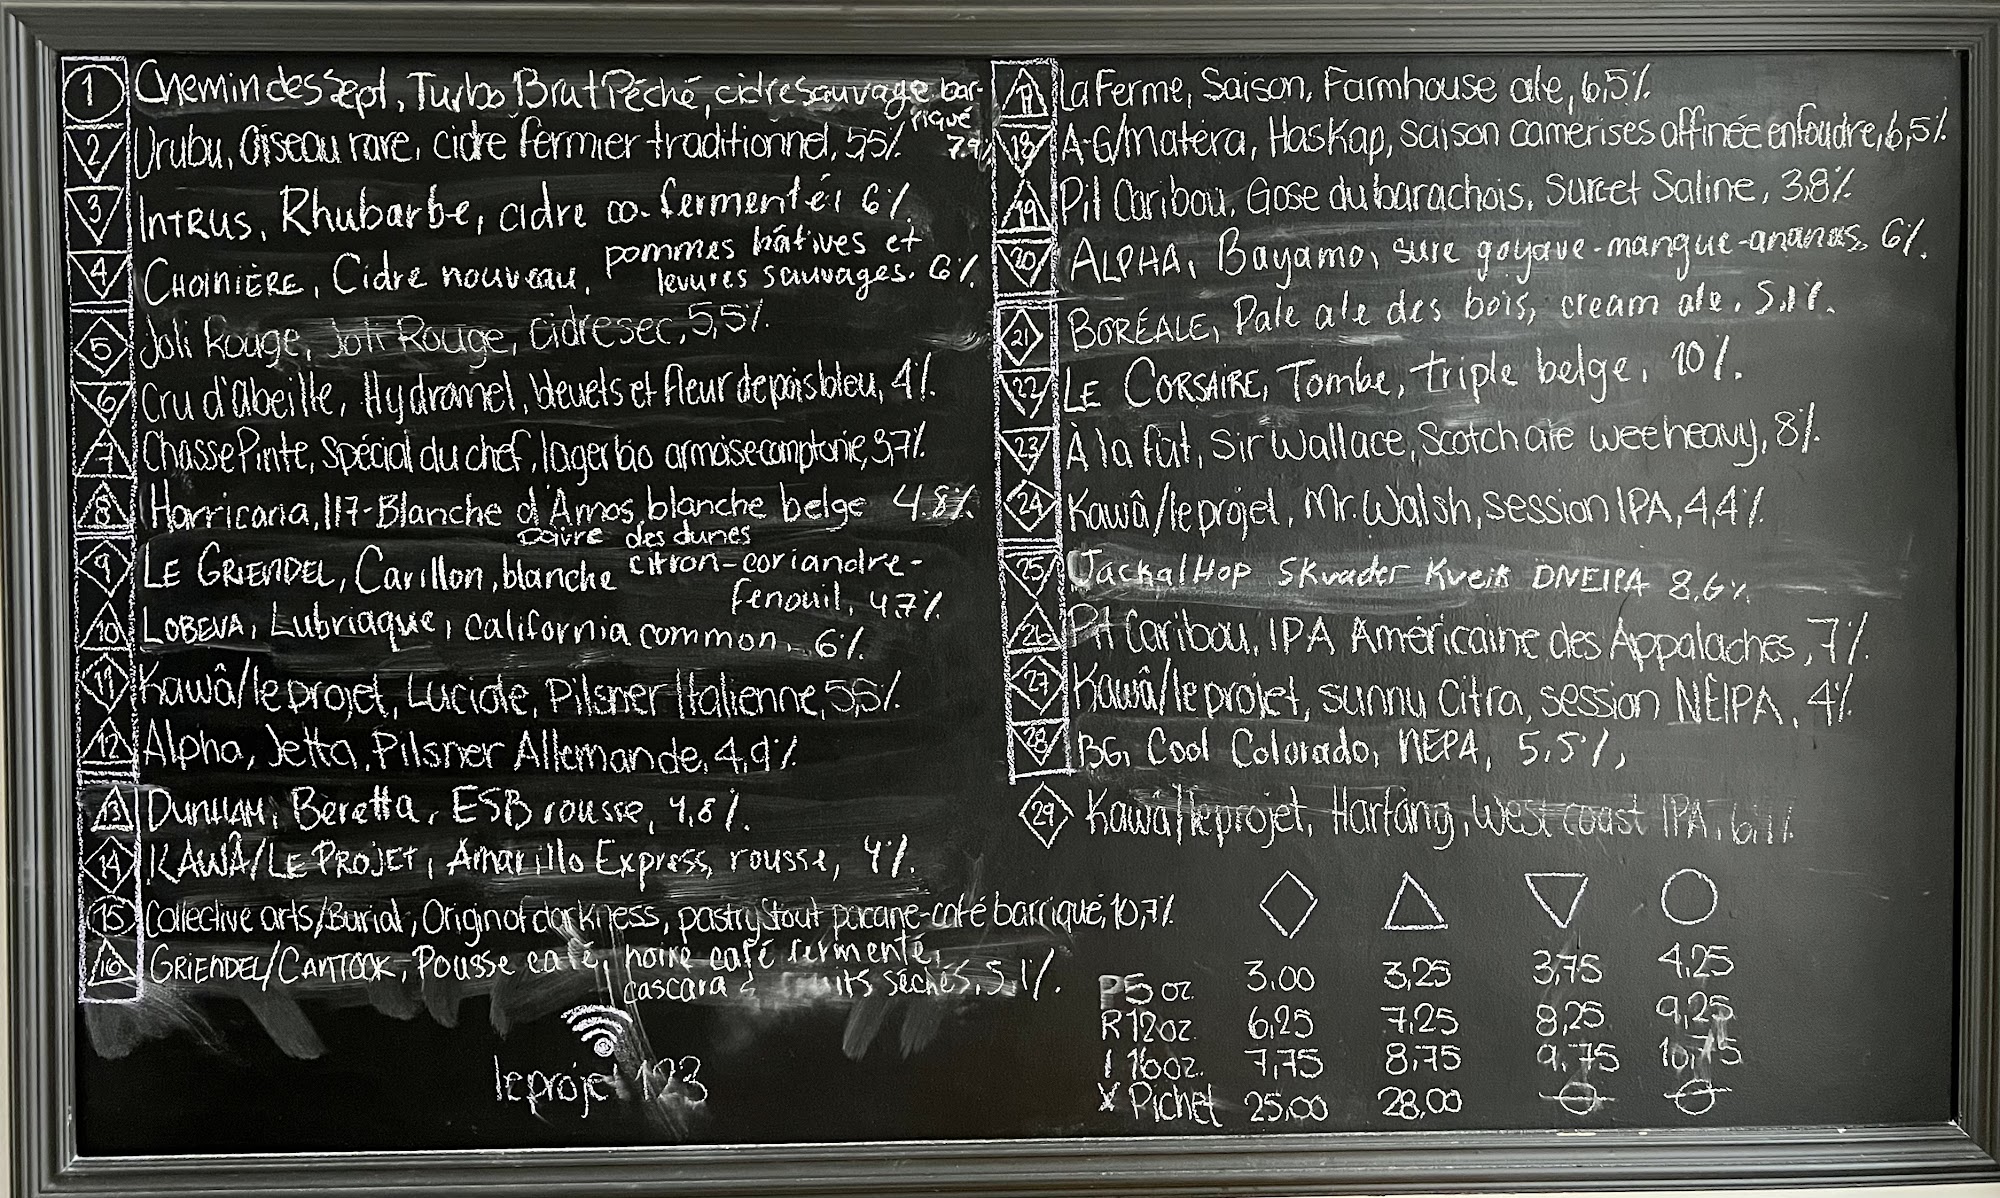 1 Chemin des Sept, Turbo Brut Péché, cidre sauvage bar-
riqué
7.9%
2 Urubu, Oiseau rare, cidre fermier traditionnel, 5,5%
3 INTRUS, Rhubarbe, cidre co-fermenté, 6%
4 CHOINIÈRE, Cidre nouveau, pommes hâtives et
levures sauvages. 6%
5 Joli Rouge, Joli Rouge, cidre sec, 5,5%
6 Cru d'abeille, Hydromel, bleuets et fleur de pois bleu, 4%
7 Chasse Pinte, Spécial du chef, lager bio armoise comptonie, 3,7%
8 Harricana, 117-Blanche d'Amos, blanche belge 4.8%
poivre des dunes
9 LE GRIENDEL, Carillon, blanche citron-coriandre-
fenouil, 4,7%
10 LOBEVA, Lubriaque, california common, 6%
11 Kawâ/le projet, Luciole, Pilsner Italienne, 5,5%
12 Alpha, Jetta, Pilsner Allemande, 4,9%
13 DUNHAM, Beretta, ESB rousse, 4,8%
14 KAWÂ/LE PROJET, Amarillo Express, rousse, 4%
15 Collective arts/Burial, Origin of darkness, pastry stout pacane-café barriqué, 10,7%
16 GRIENDEL/CANTOOK, Pousse café, noire café fermenté,
cascara & fruits séchés, 5,1%
leprojet123
17 La Ferme, Saison, Farmhouse ale, 6,5%
18 A-G/Matera, Haskap, saison camerises affinée en foudre, 6,5%
19 Pit Caribou, Gose du barachois, Sur et Saline, 3,8%
20 ALPHA, Bayamo, sure goyave-mangue-ananas, 6%
21 BORÉALE, Pale ale des bois, cream ale, 5,1%
22 LE CORSAIRE, Tombe, triple belge, 10%
23 À la fût, Sir Wallace, Scotch ale wee heavy, 8%
24 Kawâ/le projet, Mr. Walsh, session IPA, 4,4%
25 Jackalhop Skvader Kveik DNEIPA 8,6%
26 Pit Caribou, IPA Américaine des Appalaches, 7%
27 Kawâ/le projet, sunny Citra, session NEIPA, 4%
28 BG, Cool Colorado, NEPA, 5,5%,
29 Kawâ/le projet, Harfang, West coast IPA, 6,1%
P 5 oz. 3,00 3,25 3,75 4,25
R 12 oz 6,25 7,25 8,25 9,25
I 16 oz. 7,75 8,75 9,75 10,75
X Pichet 25,00 28,00